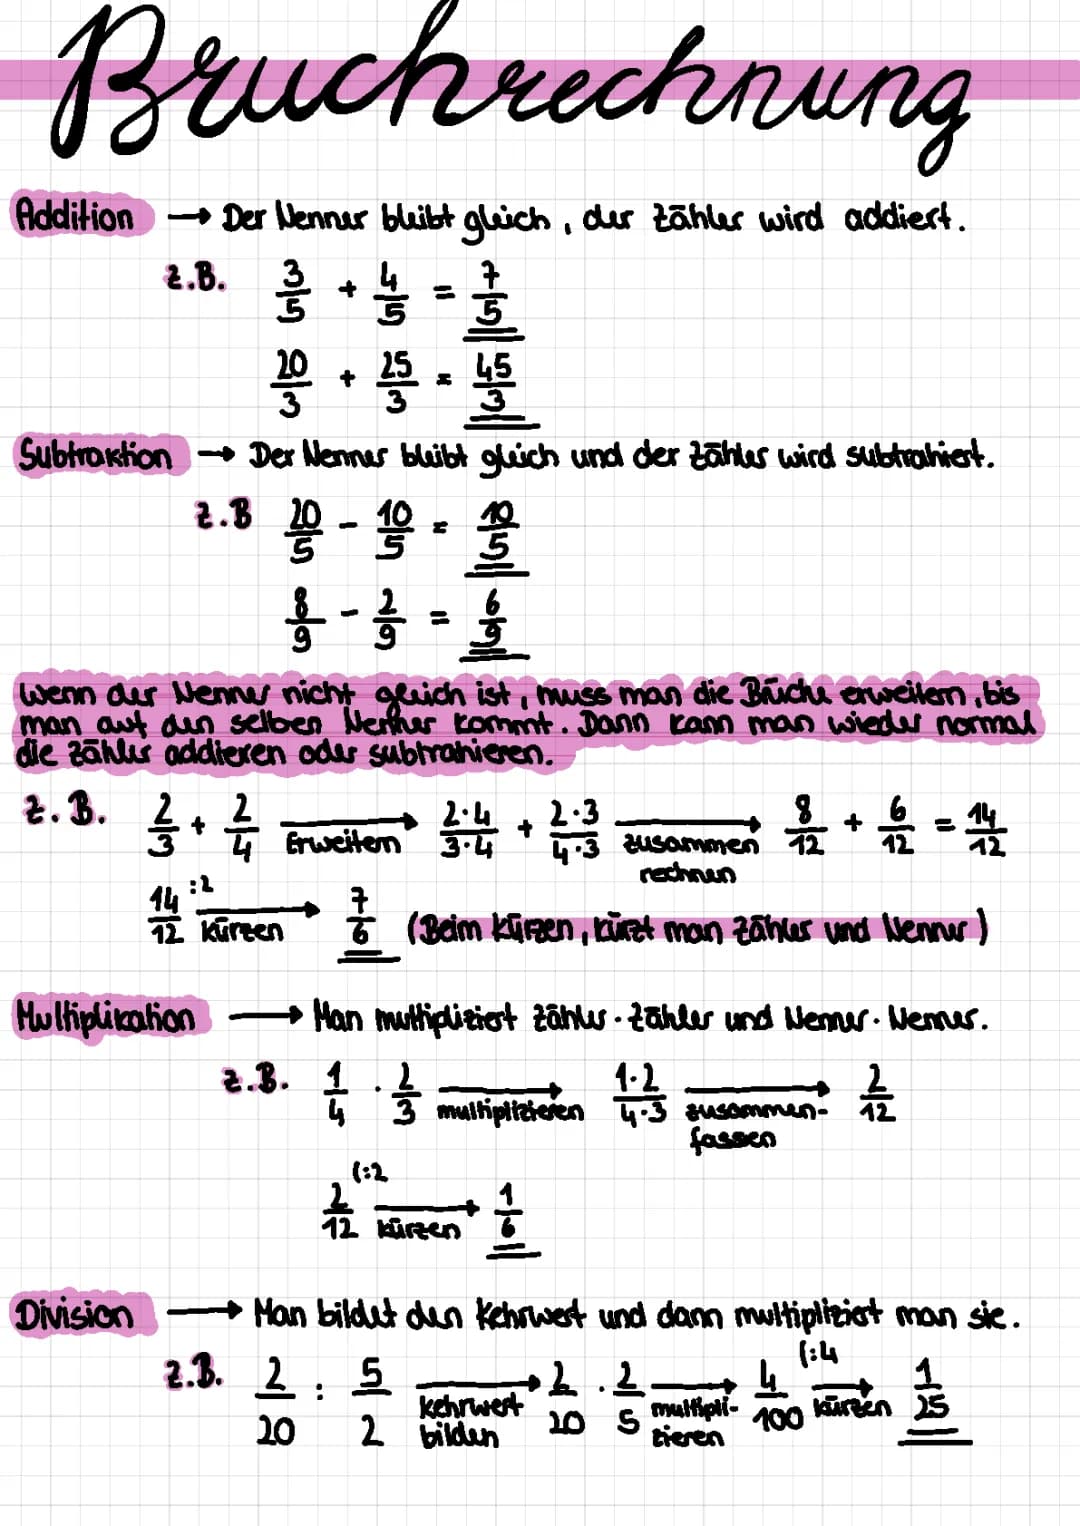 Bruchrechnung
Addition → Der Nenner bleibt gleich, der Zähler wird addiert.
z.B. 3/5 + 4/5 = 7/5
20/3 + 25/3 = 45/3
Subtraktion → Der Nenner bleibt gleich und der Zähler wird subtrahiert.
z.B 20/5 - 10/5 = 10/5
8/9 - 2/9 = 6/9
Wenn der Nenner nicht gleich ist, muss man die Brüche erweitern, bis
man auf den selben Nenner kommt. Dann kann man wieder normal
die Zähler addieren oder subtrahieren.
z.B. 2/3 + 2/4 → Erweitern 2·4/3·4 + 2·3/4·3 → zusammen rechnen 8/12 + 6/12 = 14/12
14/12 :2 → kürzen 7/6 (Beim kürzen, kürzt man Zähler und Nenner)
Multiplikation → Man multipliziert Zähler · Zähler und Nenner · Nenner.
z.B. 1/4 · 2/3 → multiplizieren 1·2/4·3 → zusammen-fassen 2/12
2/12 (:2 → kürzen 1/6
Division → Man bildet den Kehrwert und dann multipliziert man sie.
z.B. 2/20 : 5/2 → Kehrwert bilden 2/20 · 2/5 → multipli-zieren 4/100 (:4 → kürzen 1/25